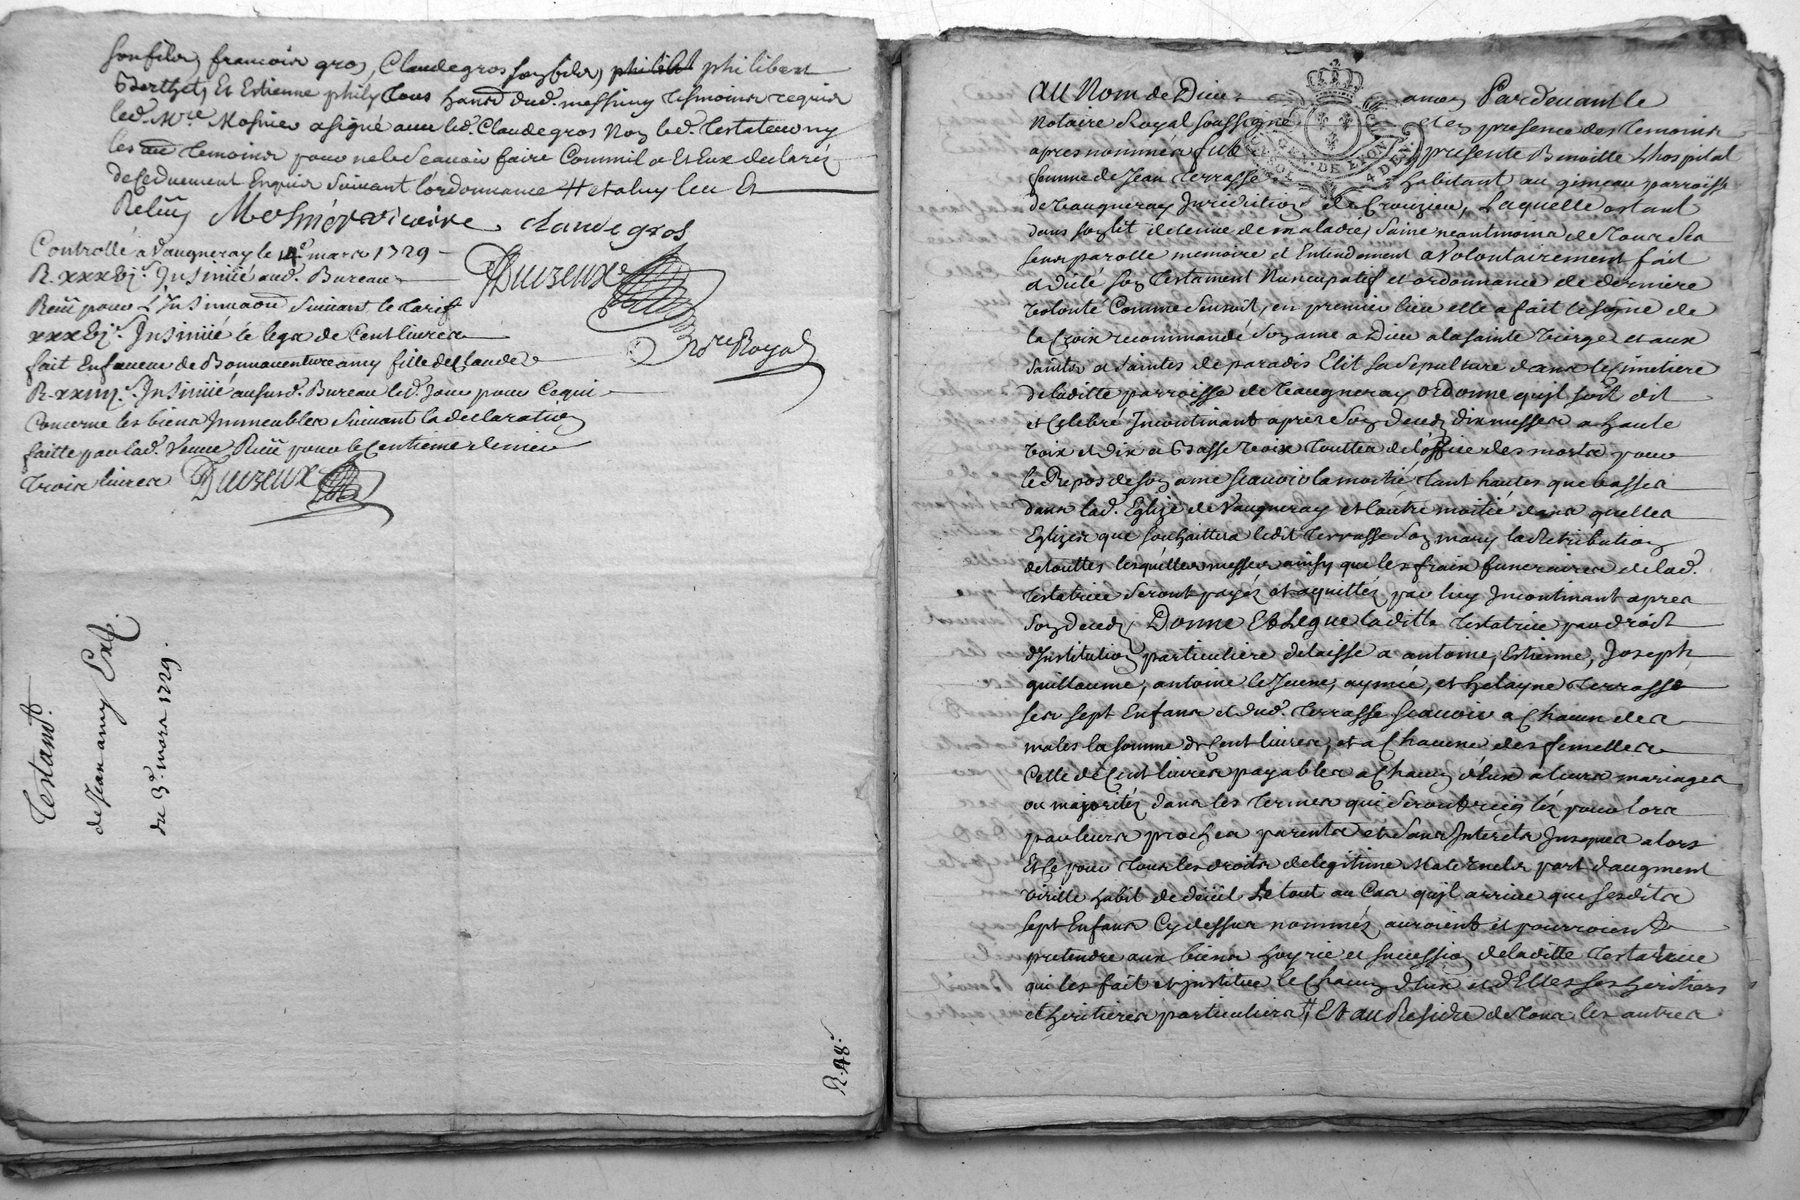 son fils, francois gros, Claude gros son fils, philibert philibert
Berthet, Et Estienne phily tous hans dud. messimy tesmoins requis
led. Mre Mosnier a signé avec led. Claude gros Non led. Testateur ny
les au temoins pour ne le scauoir faire Comme il a Et Eux declaré
de ce duement Enquis Suivant l'ordonnance # et a luy leu Et
Releu Mosnier vicaire claude gros
Controllé a Vaugneray le 4e. mars 1729
R. xxxvj s. Insinué aud. Bureau
Receu pour L'Insinuaon Suivant le tarif
xxxvj s. Insinué le legs de Cent livres
fait En faveur de Bonnaventure amy fille de Claude
R. xxiiij s. Insinué au susd. Bureau led. Jour pour Ce qui
Concerne les biens Immeubles Suivant la declaration
faitte par lad. Veuve Receu pour le Centieme denier
trois livres
Nore Royal
Testamt.
de Jean amy Exp.
du 3e. mars 1729.
R. 48 s.
AU Nom de Dieu amen Pardevant le
Notaire Royal soussigné et en presence des temoins
apres nommés fut presente Benoitte Lhospital
femme de Jean Terrasse habitant au gimeau parroisse
de Vaugneray Jurisdiction de Crouzieu, Laquelle estant
dans son lit detenue de maladie, saine neantmoins de tous ses
sens parolle memoire et Entendement a Volontairement fait
et dicté son Testament Nuncupatif et ordonnance de derniere
Volonté Comme s'ensuit, en premier lieu elle a fait le signe de
la Croix recommandé son ame a Dieu a la sainte Vierge et aux
saints et saintes de paradis Elit sa sepulture dans le Cimetiere
de laditte parroisse de Vaugneray ordonne qu'il soit dit
et Celebré Incontinant apres son deced dix messes a haute
Voix et dix a Basse Voix touttes de l'office des morts pour
le Repos de son ame scauoir la moitié tant hautes que basses
dans lad. Eglize de Vaugneray et l'autre moitié dans quelles
Eglizes que souhaittera ledit Terrasse son mary la Retribution
de touttes lesquelles messes ainsy que les fraix funeraires de lad.
testatrice seront payés et aquittés par luy Incontinant apres
son deced, Donne Et Legue laditte testatrice par droit
d'Institution particuliere delaisse a antoine, Estienne, Joseph
guillaume, antoine le Jeune, aymée, et helayne Terrasse
ses sept Enfans et dud. Terrasse scauoir a Chacun des
males la somme de Cent livres, et a Chacune des femelles
Celle de Cent livres payables a Chacun d'eux a leurs mariages
ou majorités dans les termes qui seront reiglés pour lors
par leurs proches parents et sans Interets Jusques alors
Et Ce pour tous les droits de legitime Maternels part d'augment
Virille habit de deüil Le tout au Cas qu'il arrive que sesdits
sept Enfans Cy dessus nommés auroient et pourroient
pretendre aux biens hoyrie et succession de laditte testatrice
qui les fait et institue le Chacun d'Eux et d'Elles ses heritiers
et heritieres particuliers # Et au Residu de tous les autres